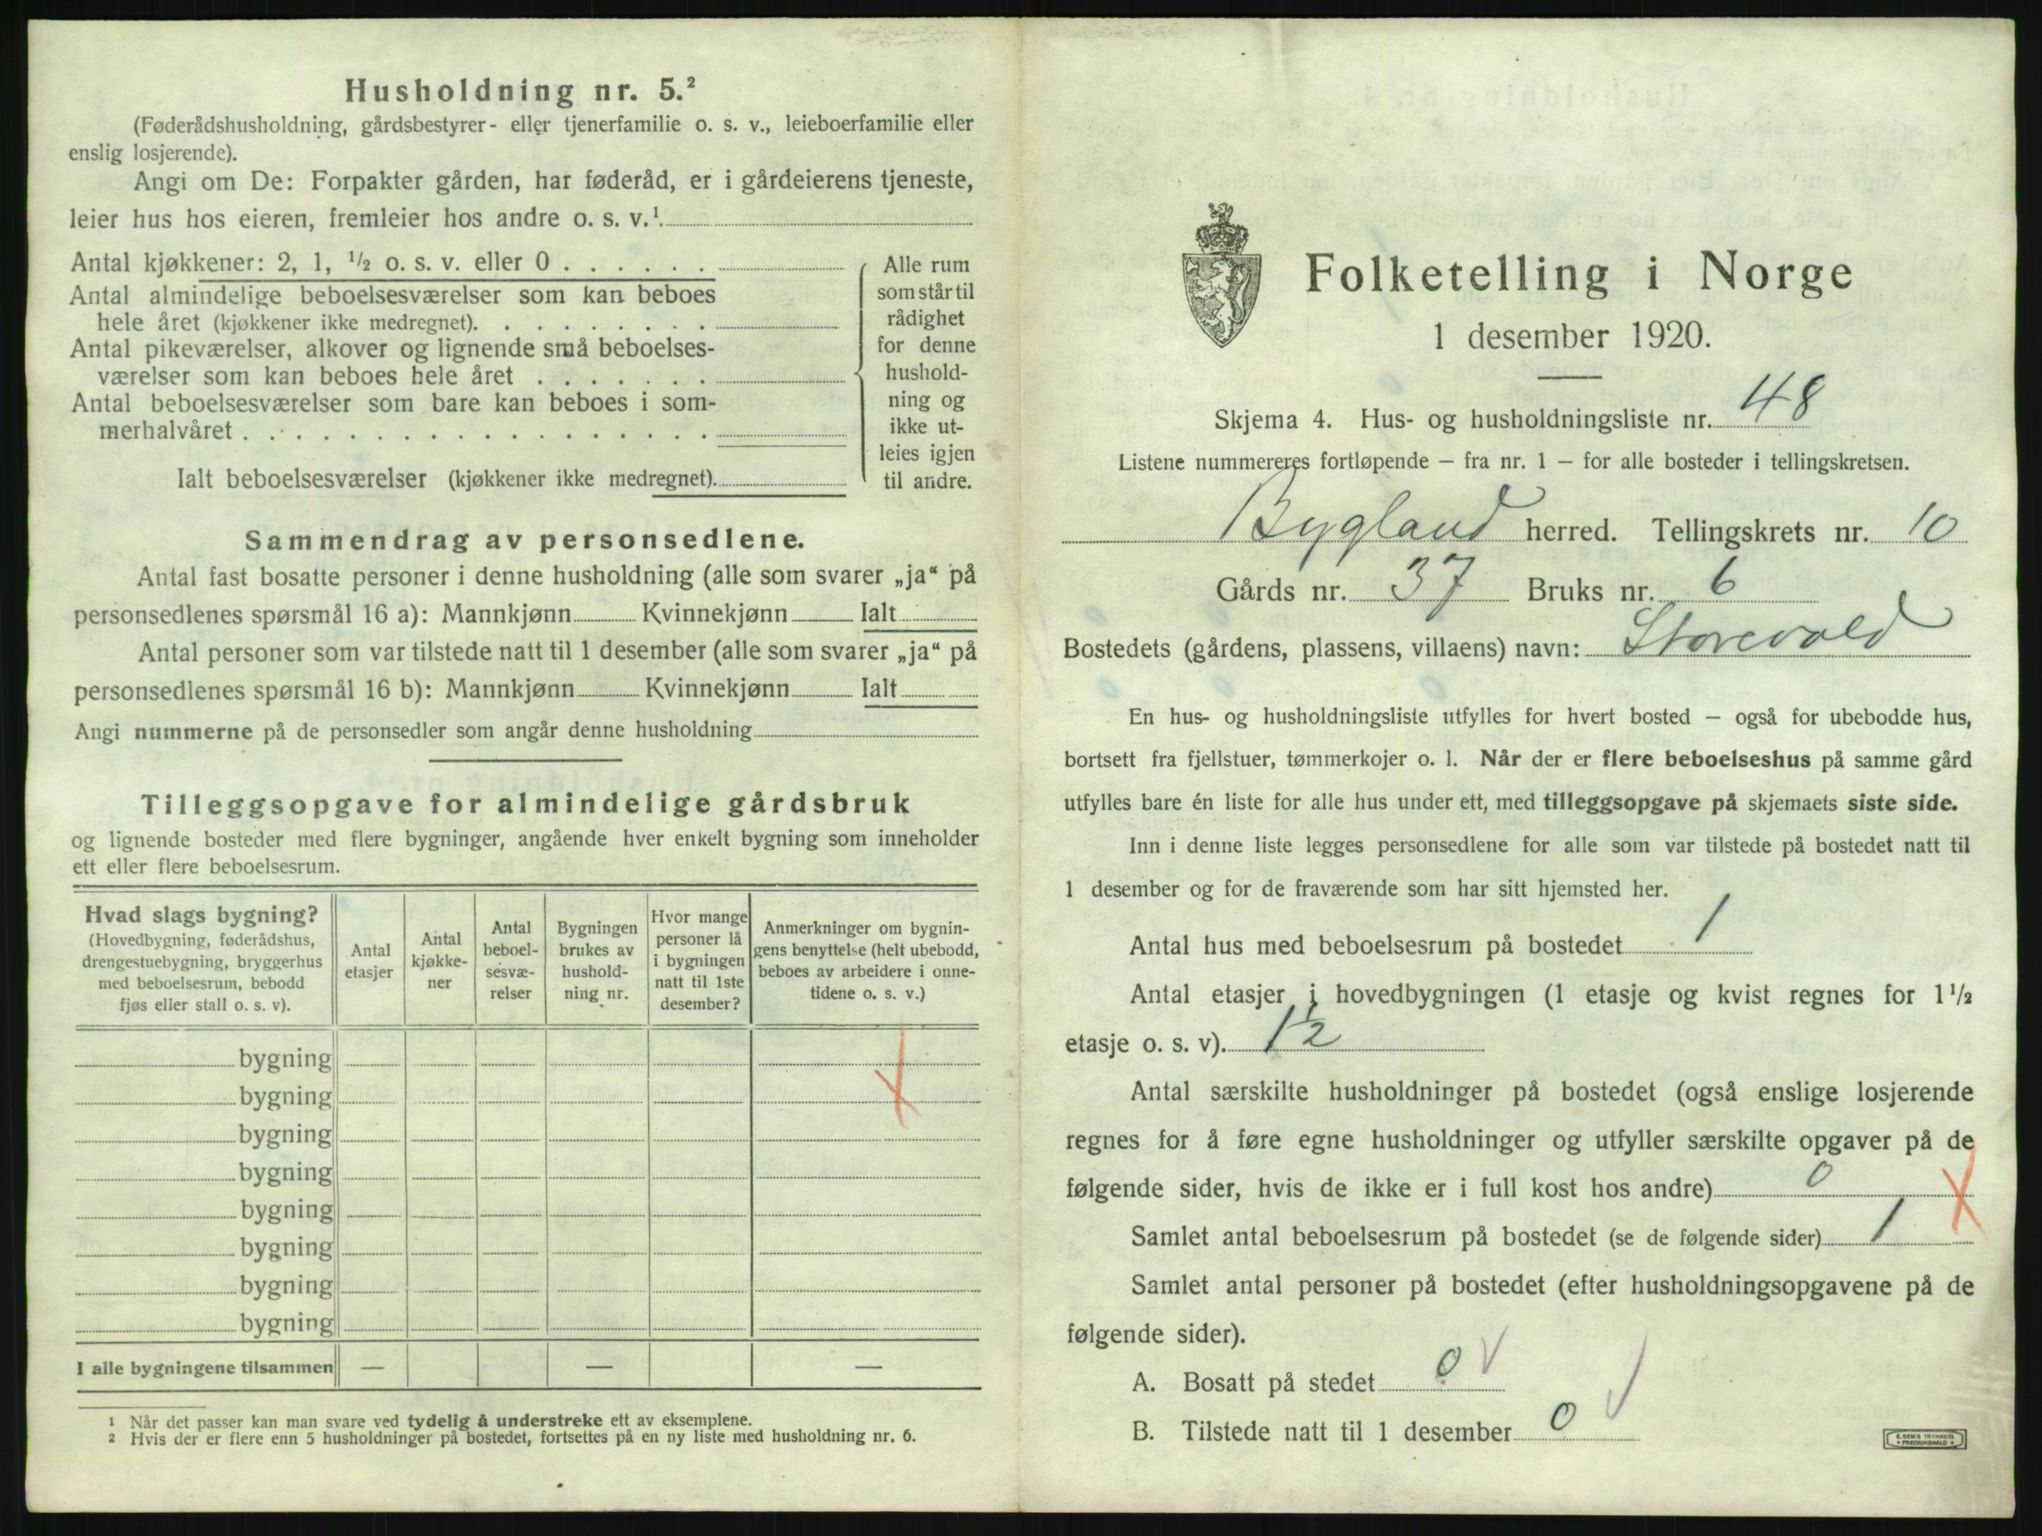 Husholdning nr. 5.²
(Føderådshusholdning, gårdsbestyrer- eller tjenerfamilie o. s. v., leieboerfamilie eller
enslig losjerende).
Angi om De: Forpakter gården, har føderåd, er i gårdeierens tjeneste,
leier hus hos eieren, fremleier hos andre o. s. v.¹
Antal kjøkkener: 2, 1, ½ o. s. v. eller 0
Antal almindelige beboelsesværelser som kan beboes
hele året (kjøkkener ikke medregnet).
Antal pikeværelser, alkover og lignende små beboelses-
værelser som kan beboes hele året
Antal beboelsesværelser som bare kan beboes i som-
merhalvåret
Ialt beboelsesværelser (kjøkkener ikke medregnet).
Alle rum
som står til
rådighet
for denne
hushold-
ning og
ikke ut-
leies igjen
til andre.
Sammendrag av personsedlene.
Antal fast bosatte personer i denne husholdning (alle som svarer „ja“ på
personsedlenes spørsmål 16 a): Mannkjønn Kvinnekjønn Ialt
Antal personer som var tilstede natt til 1 desember (alle som svarer „ja“ på
personsedlenes spørsmål 16 b): Mannkjønn Kvinnekjønn Ialt
Angi nummerne på de personsedler som angår denne husholdning
Tilleggsopgave for almindelige gårdsbruk
og lignende bosteder med flere bygninger, angående hver enkelt bygning som inneholder
ett eller flere beboelsesrum.
Hvad slags bygning?
(Hovedbygning, føderådshus,
drengestuebygning, bryggerhus
med beboelsesrum, bebodd
fjøs eller stall o. s. v).
Antal
etasjer
Antal
kjøkke-
ner
Antal
beboel-
sesvæ-
relser
Bygningen
brukes av
hushold-
ning nr.
Hvor mange
personer lå
i bygningen
natt til 1ste
desember?
Anmerkninger om bygnin-
gens benyttelse (helt ubebodd,
beboes av arbeidere i onne-
tidene o. s. v.)
bygning
bygning
bygning
bygning
bygning
bygning
bygning
bygning
I alle bygningene tilsammen — — —
¹ Når det passer kan man svare ved tydelig å understreke ett av eksemplene.
² Hvis der er flere enn 5 husholdninger på bostedet, fortsettes på en ny liste med husholdning nr. 6.
Folketelling i Norge
1 desember 1920.
Skjema 4. Hus- og husholdningsliste nr. 48
Listene nummereres fortløpende – fra nr. 1 – for alle bosteder i tellingskretsen.
Bygland herred. Tellingskrets nr. 10
Gårds nr. 37 Bruks nr. 6
Bostedets (gårdens, plassens, villaens) navn: Storevold
En hus- og husholdningsliste utfylles for hvert bosted – også for ubebodde hus,
bortsett fra fjellstuer, tømmerkojer o. l. Når der er flere beboelseshus på samme gård
utfylles bare én liste for alle hus under ett, med tilleggsopgave på skjemaets siste side.
Inn i denne liste legges personsedlene for alle som var tilstede på bostedet natt til
1 desember og for de fraværende som har sitt hjemsted her.
Antal hus med beboelsesrum på bostedet 1
Antal etasjer i hovedbygningen (1 etasje og kvist regnes for 1½
etasje o. s. v). 1½
Antal særskilte husholdninger på bostedet (også enslige losjerende
regnes for å føre egne husholdninger og utfyller særskilte opgaver på de
følgende sider, hvis de ikke er i full kost hos andre) 0
Samlet antal beboelsesrum på bostedet (se de følgende sider) 1
Samlet antal personer på bostedet (efter husholdningsopgavene på de
følgende sider).
A. Bosatt på stedet 0
B. Tilstede natt til 1 desember 0